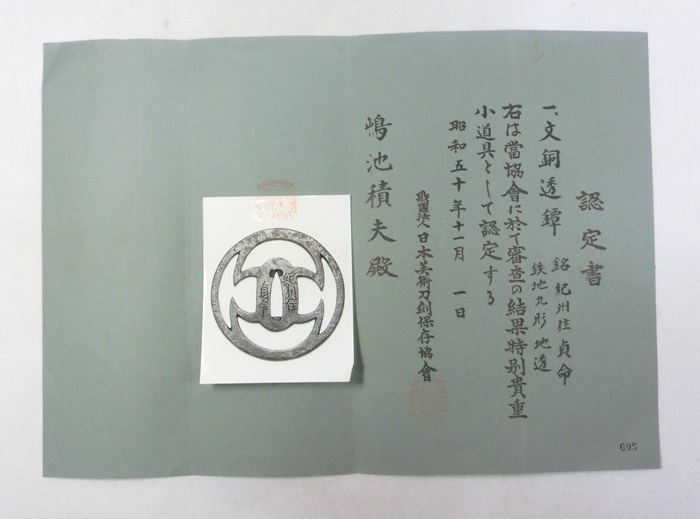 認定書
一、文銅透鐔
銘 紀州住貞命
鉄地丸形地透
右は當協會に於て審査の結果特別貴重
小道具として認定する
昭和五十年十一月 一日
財團法人日本美術刀剣保存協會
嶋池積夫殿
紀州住
貞命
695